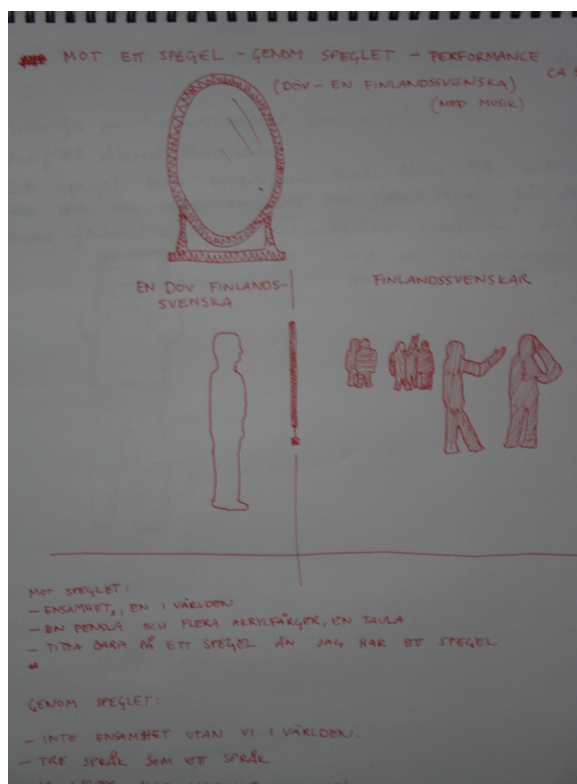 MOT ETT SPEGEL - GENOM SPEGLET - PERFORMANCE
CA
(DÖV - EN FINLANDSSVENSKA)
(MED MUSIK)
EN DÖV FINLANDS-
SVENSKA
FINLANDSSVENSKAR
MOT SPEGLET:
- ENSAMHET, EN I VÄRLDEN
- EN PENSLA OCH FLERA AKRYLFÄRGER, EN TAVLA
- TITTA BARA PÅ ETT SPEGEL ÄN JAG HAR ETT SPEGEL
GENOM SPEGLET:
- INTE ENSAMHET UTAN VI I VÄRLDEN.
- TRE SPRÅK SOM ETT SPRÅK